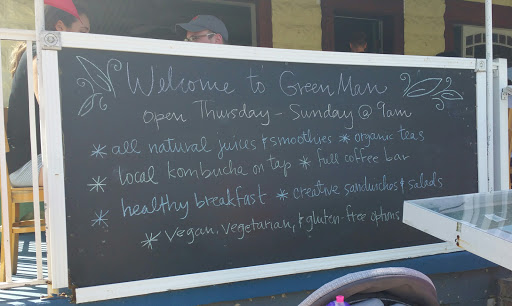 Welcome to Green Man
open Thursday - Sunday @ 9am
* all natural juices & smoothies * organic teas
* local kombucha on tap * full coffee bar
* healthy breakfast * creative sandwiches & salads
* vegan, vegetarian, & gluten-free options